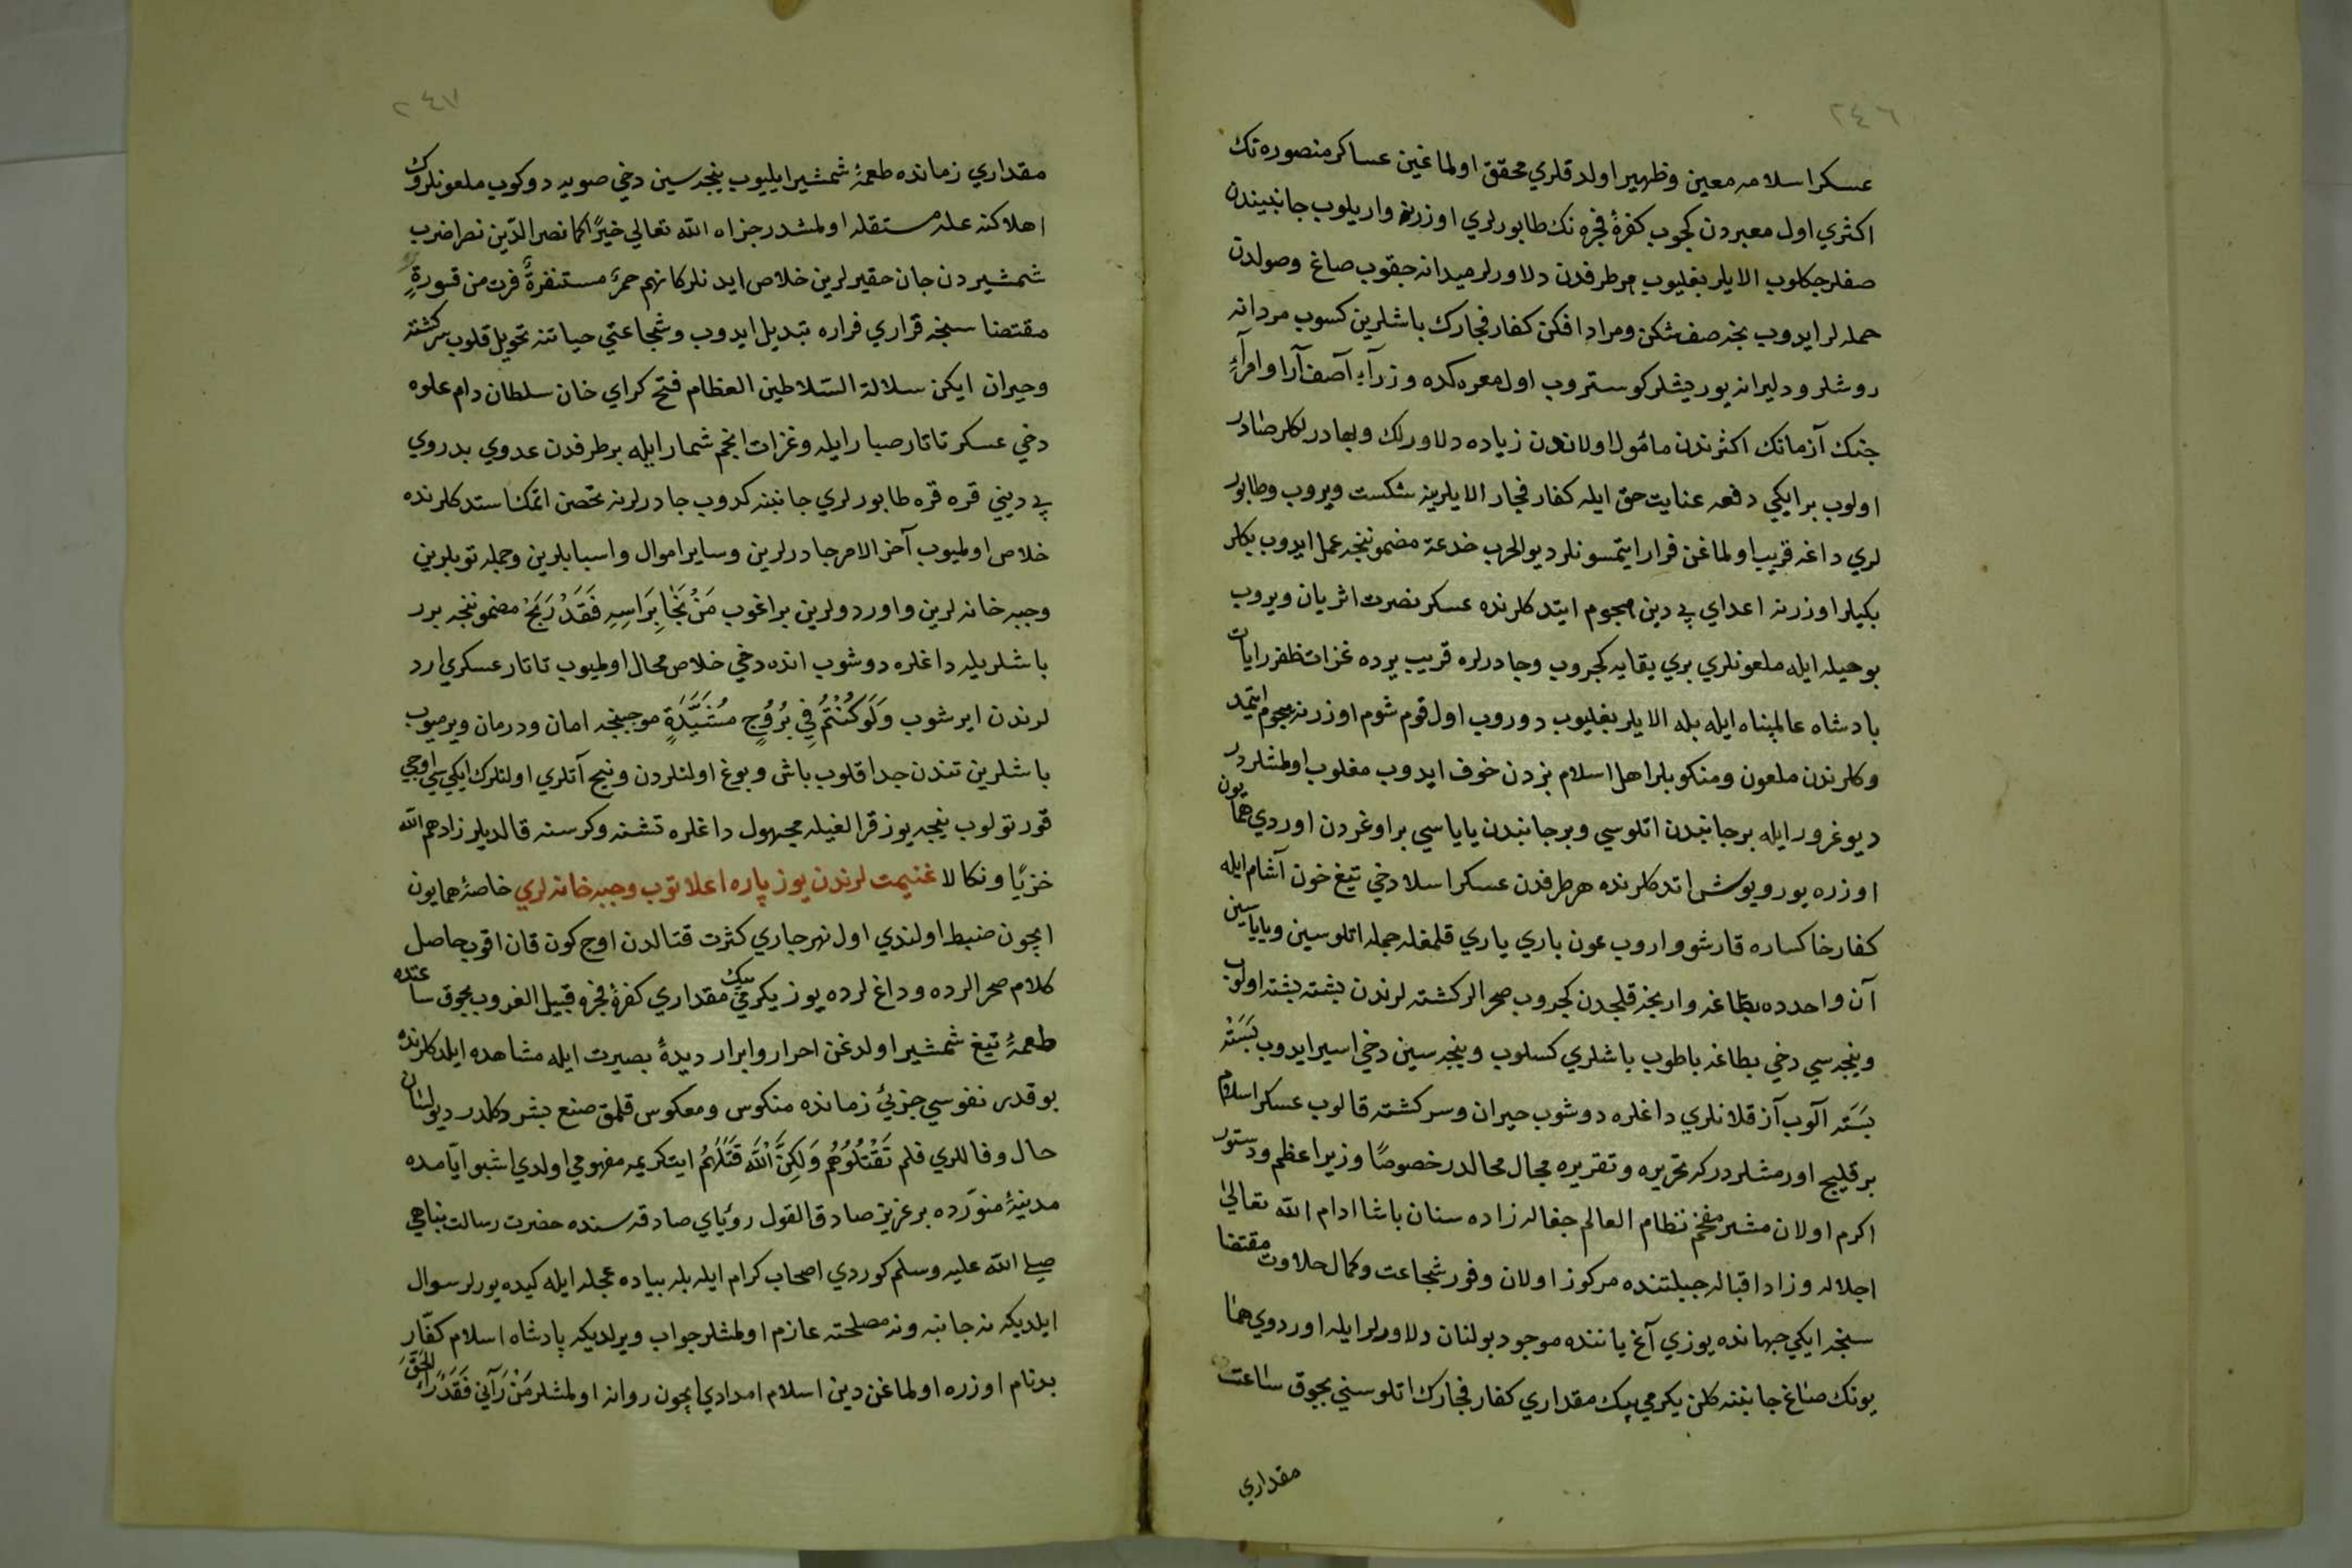 ٢٤٦
عسكر اسلامه معين وظهير اولدقلري محقق اولماغين عساكر منصوره نك
اكثري اول معبردن كجوب كفرۀ فجره نك طابورلري اوزرنه واريلوب جانبيندن
صفلر جكلوب الايلر بغليوب هر طرفدن دلاورلر ميدانه جقوب صاغ وصولدن
حمله لر ايدوب نجه صف شكن ومرد افكن كفار فجارك باشلرين كسوب مردانه
روشلر ودليرانه يوريشلر كوستروب اول معركده وزرآء آصف آرا وامرآء
جنك آزمانك اكثرندن مأمول اولاندن زياده دلاورلك وبهادرلكلر صادر
اولوب بر ايكي دفعه عنايت حق ايله كفار فجار الايلرينه شكست ويروب وطابور
لري داغه قريب اولماغن فرار ايتمسونلر ديو الحرب خدعة مضموننجه عمل ايدوب بكلر
بكيلر اوزرنه اعداي بي دين هجوم ايتدكلرنده عسكر نصرت اثر يان ويروب
بو حيله ايله ملعونلري بري يقايه كجروب وجادرلره قريب يرده غزات ظفر رايات
بادشاه عالمپناه ايله بله الايلر بغليوب دوروب اول قوم شوم اوزرنه هجوم ايتمد
وكلرندن ملعون ومنكوبلر اهل اسلام بزدن خوف ايدوب مغلوب اولمشلردر
ديو غرور ايله بر جانبدن اتلوسي وبر جانبدن ياياسي بر اوغردن اوردي همايون
اوزره يورويوش اتدكلرنده هر طرفدن عسكر اسلام دخي تيغ خون آشام ايله
كفار خاكساره قارشو واروب عون باري ياري قلمغله جمله اتلوسين وياياسين
آن واحدده بطاغه وارنجه قلجدن كجروب صحرالر كشته لرندن پشته پشته اولوب
ونيجه سي دخي بطاغه باطوب باشلري كسلوب ونيجه سين دخي اسير ايدوب بسته
بسته آلوب آز قلانلري داغلره دوشوب حيران وسركشته قالوب عسكر اسلام
بر قليج اورمشلردر كه تحريره وتقريره مجال محالدر خصوصًا وزير اعظم ودستور
اكرم اولان مشير مفخم نظام العالم جغاله زاده سنان پاشا ادام الله تعالى
اجلاله وزاد اقباله جبيلتنده مركوز اولان وفور شجاعت وكمال حلاوت مقتضا
سنجه ايكي جهانده يوزي آغ ياننده موجود بولنان دلاورلر ايله اوردوي هما
يونك صاغ جانبنه كلن يكرمي بيك مقداري كفار فجارك اتلوسني بجوق ساعت
مقداري
٢٤٧
مقداري زمانده طعمۀ شمشير ايليوب نيجه سين دخي صويه دوكوب ملعونلرك
اهلاكنه علۀ مستقله اولمشدر جزاه الله تعالي خيرًا كما نصر الدّين نصرا ضرب
شمشيردن جان حقيرلرين خلاص ايدنلر كانهم حمرٌ مستنفرةٌ فرت من قسورةٍ
مقتضا سنجه قراري فراره تبديل ايدوب وشجاعتي حياتنه تحويل قلوب سركشته
وحيران ايكن سلالة السّلاطين العظام فتح كراي خان سلطان دام علوه
دخي عسكر تاتار صبارايله وغزات انجم شمار ايله بر طرفدن عدوي بدروي
بي ديني قره قره طابورلري جانبنه كدوب جادرلرنه تحصن اتمك استدكلرنده
خلاص اولميوب آخر الامر جادرلرين وساير اموال واسبابلرين وجمله توپلرين
وجبه خانه لرين واوردولرين براغوب مَنْ نَجٰا بِرَاسِهِ فَقَدْ رَبَحْ مضموننجه برر
باشلريله داغلره دوشوب انده دخي خلاص محال اولميوب تاتار عسكري ارد
لرندن ايرشوب وَلَوْ كُنْتُمْ فِي بُرُوجٍ مُشَيَّدَةٍ موجبنجه امان ودرمان ويرميوب
باشلرين تندن جدا قلوب باش وبوغ اولنلردن ونيج آتلري اولنلرك ايكي سي اوجي
قور تولوب نيجه يوز قرالغيله مجهول داغلره تشنه وكرسنه قالديلر زادهم الله
خزيًا ونكالا غنيمت لرندن يوز پاره اعلا توپ وجبه خانه لري خاصۀ همايون
ايچون ضبط اولندي اول نهر جاري كثرت قتالدن اوج كون قان اقوب حاصل
كلام صحرالرده وداغ لرده يوز يكرمي بيك مقداري كفرۀ فجره قبيل الغروب بجوق ساعتده
طعمۀ تيغ شمشير اولدغن احرار وابرار ديدۀ بصيرت ايله مشاهده ايلدكلرنده
بو قدر نفوسي جزئي زمانده منكوس ومعكوس قلمق صنع بشر دكلدر ديو لسان
حال وقاللري فلم تَقْتُلُوهُم وَلَكِنَّ اللّٰهَ قَتَلَهُمْ ايت كريمه مفهومي اولدي اشبو ايّامده
مدينۀ منوّرده بر عزيز صادق القول رؤياي صادقه سنده حضرت رسالت پناهي
صلى الله عليه وسلم كوردي اصحاب كرام ايله بله پياده عجله ايله كيده يورلر سوال
ايلديكه نه جانبه ونه مصلحته عازم اولمشلر جواب ويرلديكه پادشاه اسلام كفّار
بدنام اوزره اولماغن دين اسلام امدادي ايچون روانه اولمشلر مَنْ رَآنِي فَقَدْ رَأَ الْحَقَّ